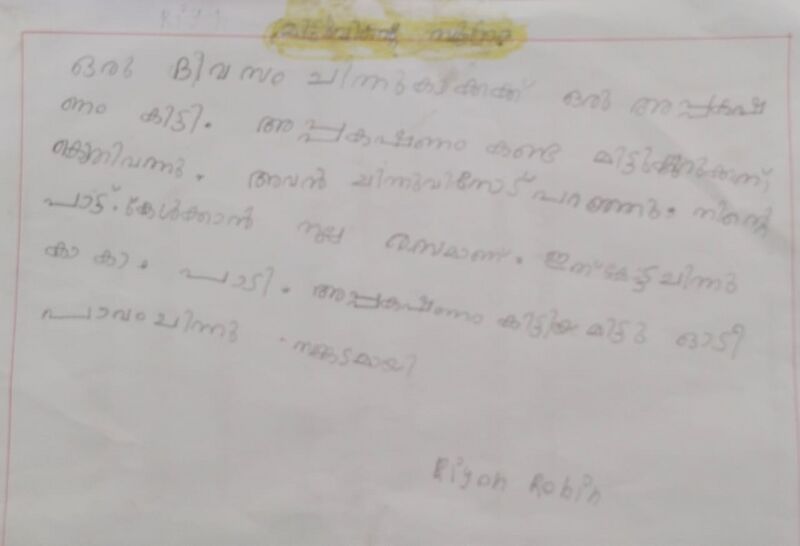 ഒരു ദിവസം ചിന്നുകാക്കക്ക് ഒരു അപ്പകഷ
ണം കിട്ടി. അപ്പകഷണം കണ്ട മിട്ടുകുറുക്കന്
കൊതിവന്നു. അവൻ ചിന്നുവിനോട് പറഞ്ഞു. നിന്റെ
പാട്ട്.കേൾക്കാൻ നല്ല രസമാണ്. ഇത്കേട്ട ചിന്നു
കാ കാ. പാടി. അപ്പകഷണം കിട്ടിയ മിട്ടു ഓടി
പാവം ചിന്നു സങ്കടമായി
Riyon Robin